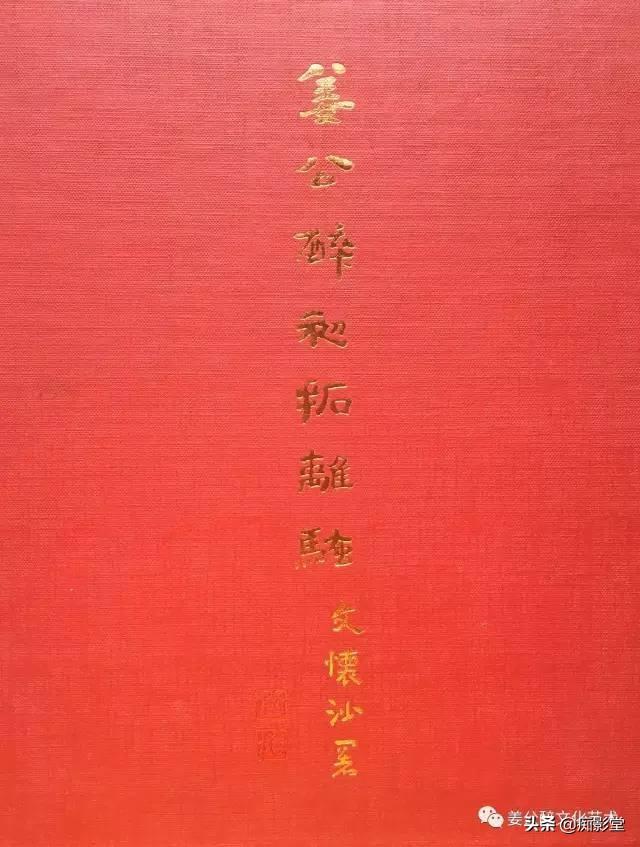 姜公醉初拓離騷
文懷沙署
姜公醉文化艺术
头条 @痴影堂